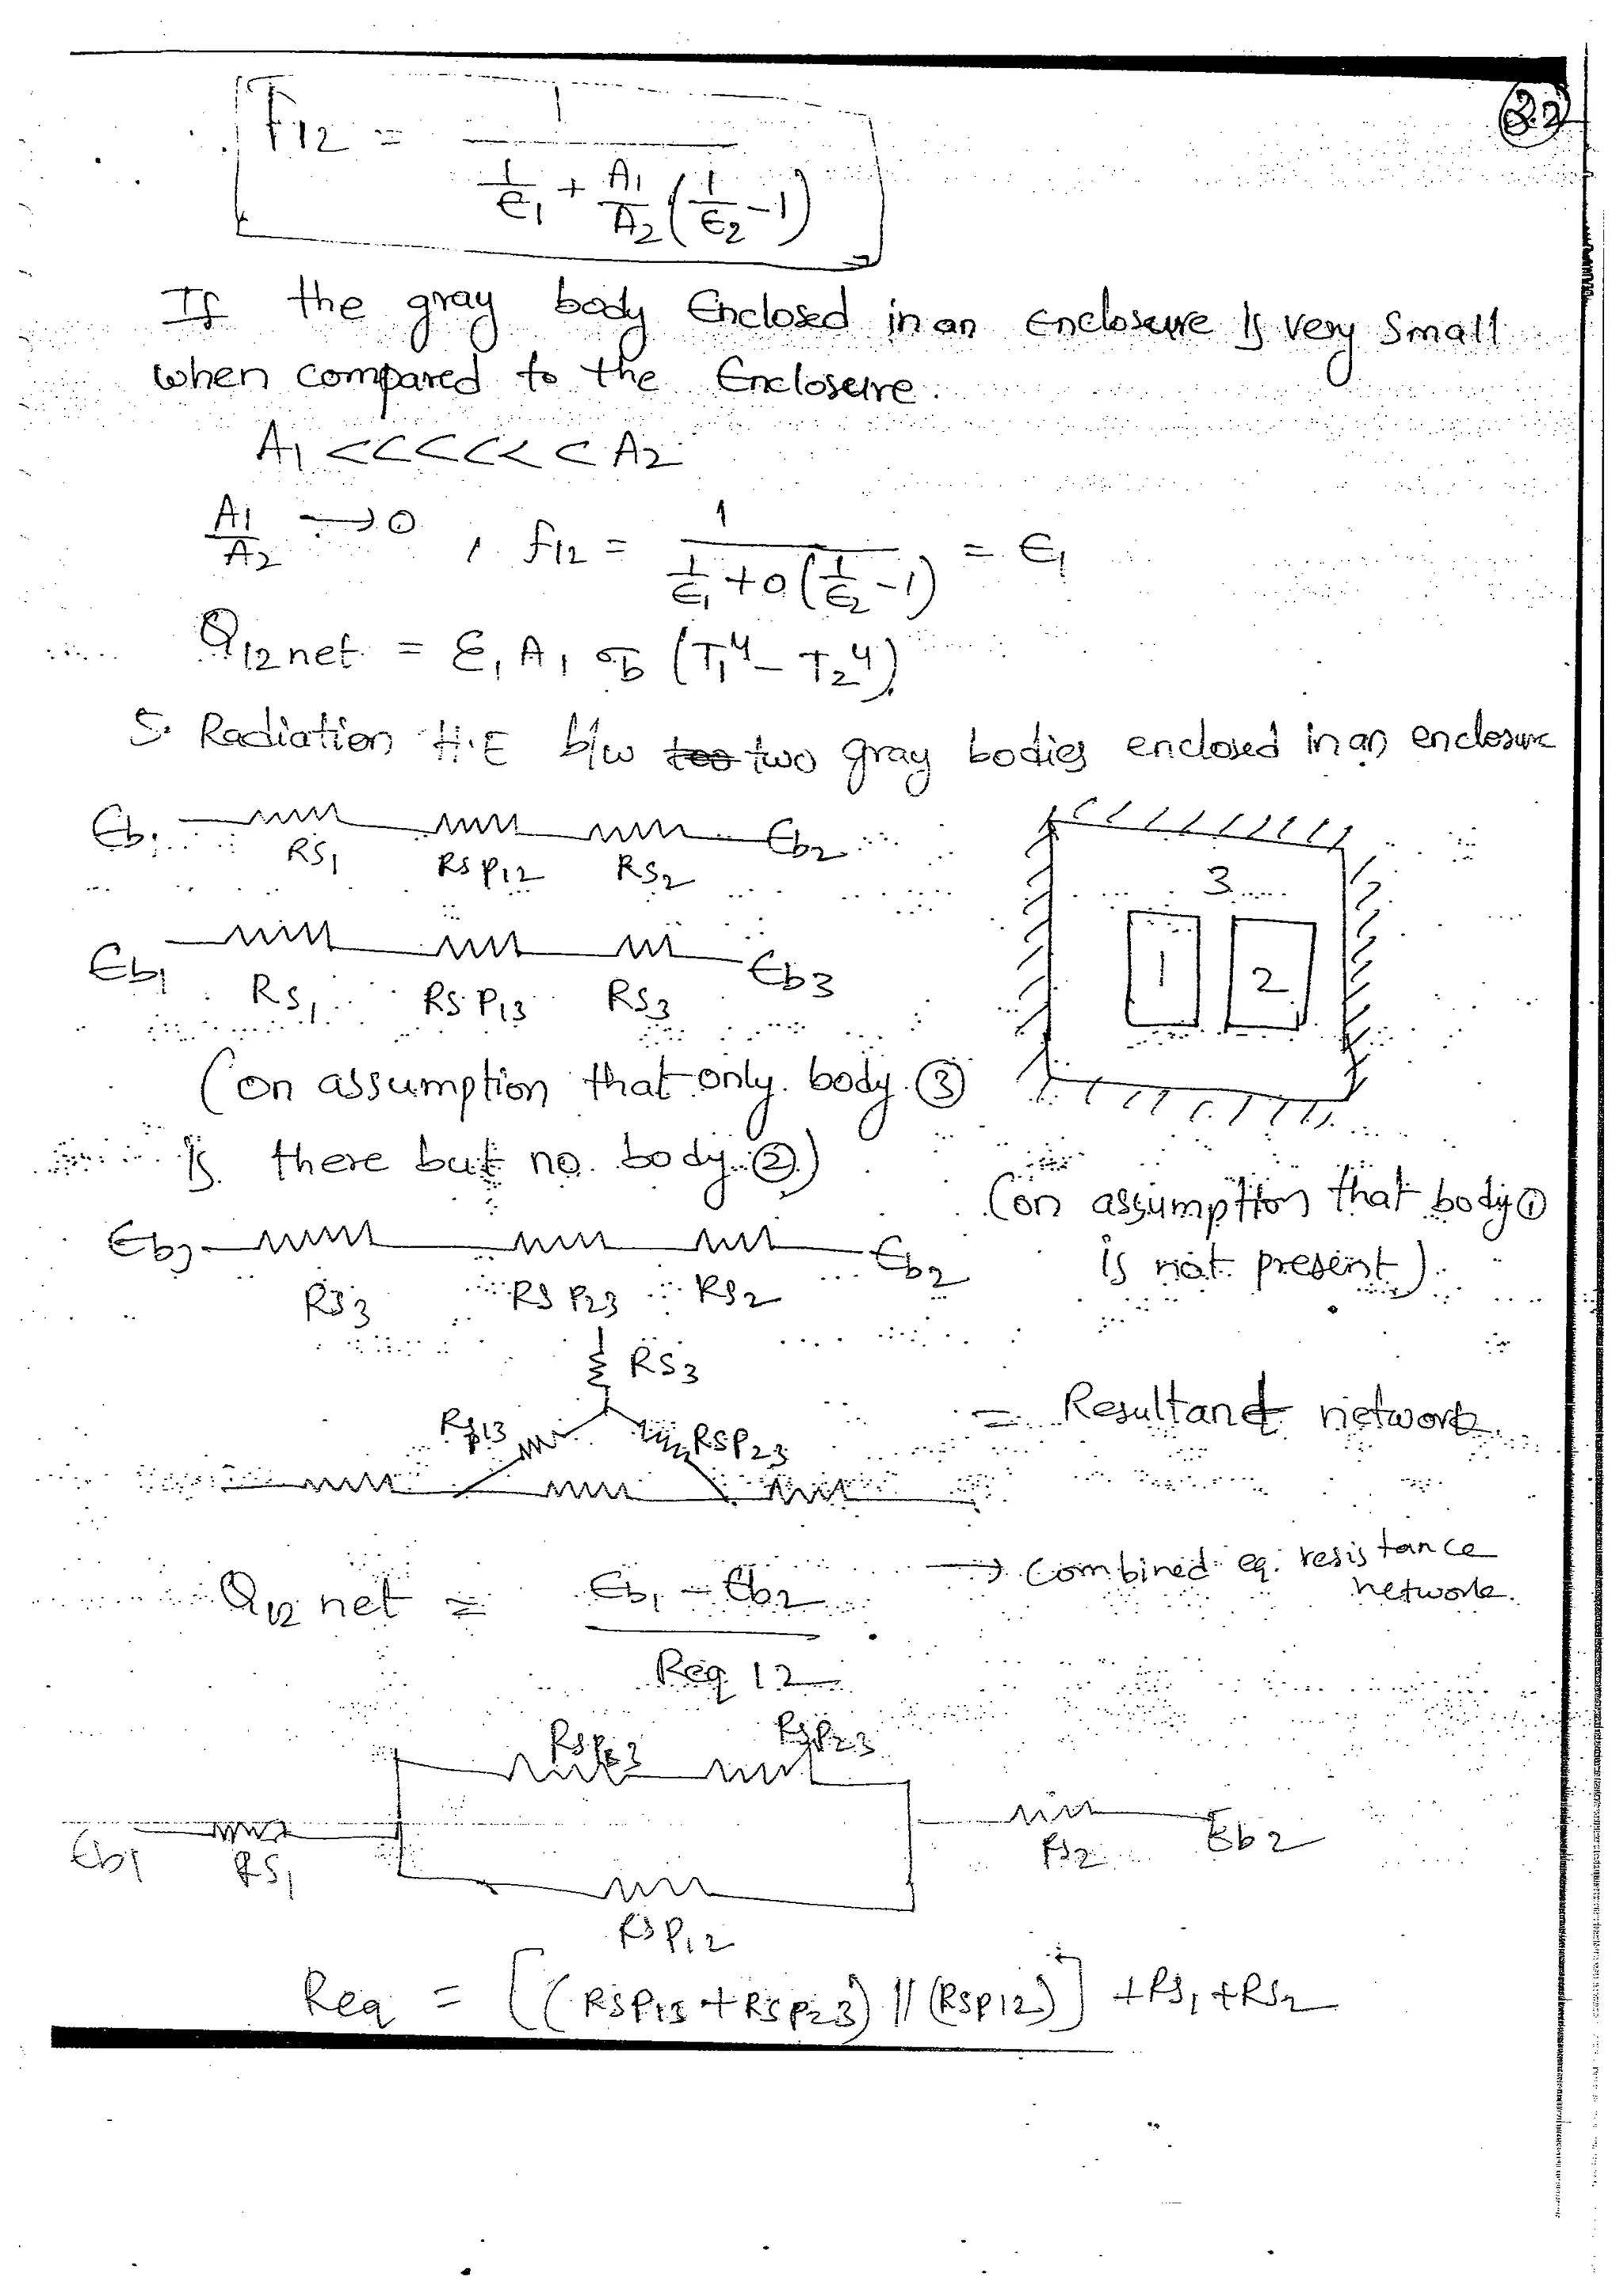 32
F12 = 1 / (1/ϵ1 + A1/A2 (1/ϵ2 - 1))
If the gray body Enclosed in an Enclosure is very small
when compared to the Enclosure.
A1 <<<<<< A2
A1/A2 → 0 , f12 = 1 / (1/ϵ1 + 0(1/ϵ2 - 1)) = ϵ1
Q12 net = ε1 A1 σb (T1⁴ - T2⁴)
5. Radiation H.E b/w two gray bodies enclosed in an enclosure
Eb1 RS1 RSP12 RS2 Eb2
3
1 2
Eb1 RS1 RSP13 RS3 Eb3
(on assumption that only body ③
is there but no body ②)
(on assumption that body ①
is not present)
Eb3 RS3 RSP23 RS2 Eb2
RS3
RSP13 RSP23
= Resultant network
Q12 net = Eb1 - Eb2 / Req 12
→ Combined eq. resistance
network.
RSP13 RSP23
Eb1 RS1 RS2 Eb2
RSP12
Req = [(RSP13 + RSP23) || (RSP12)] + RS1 + RS2